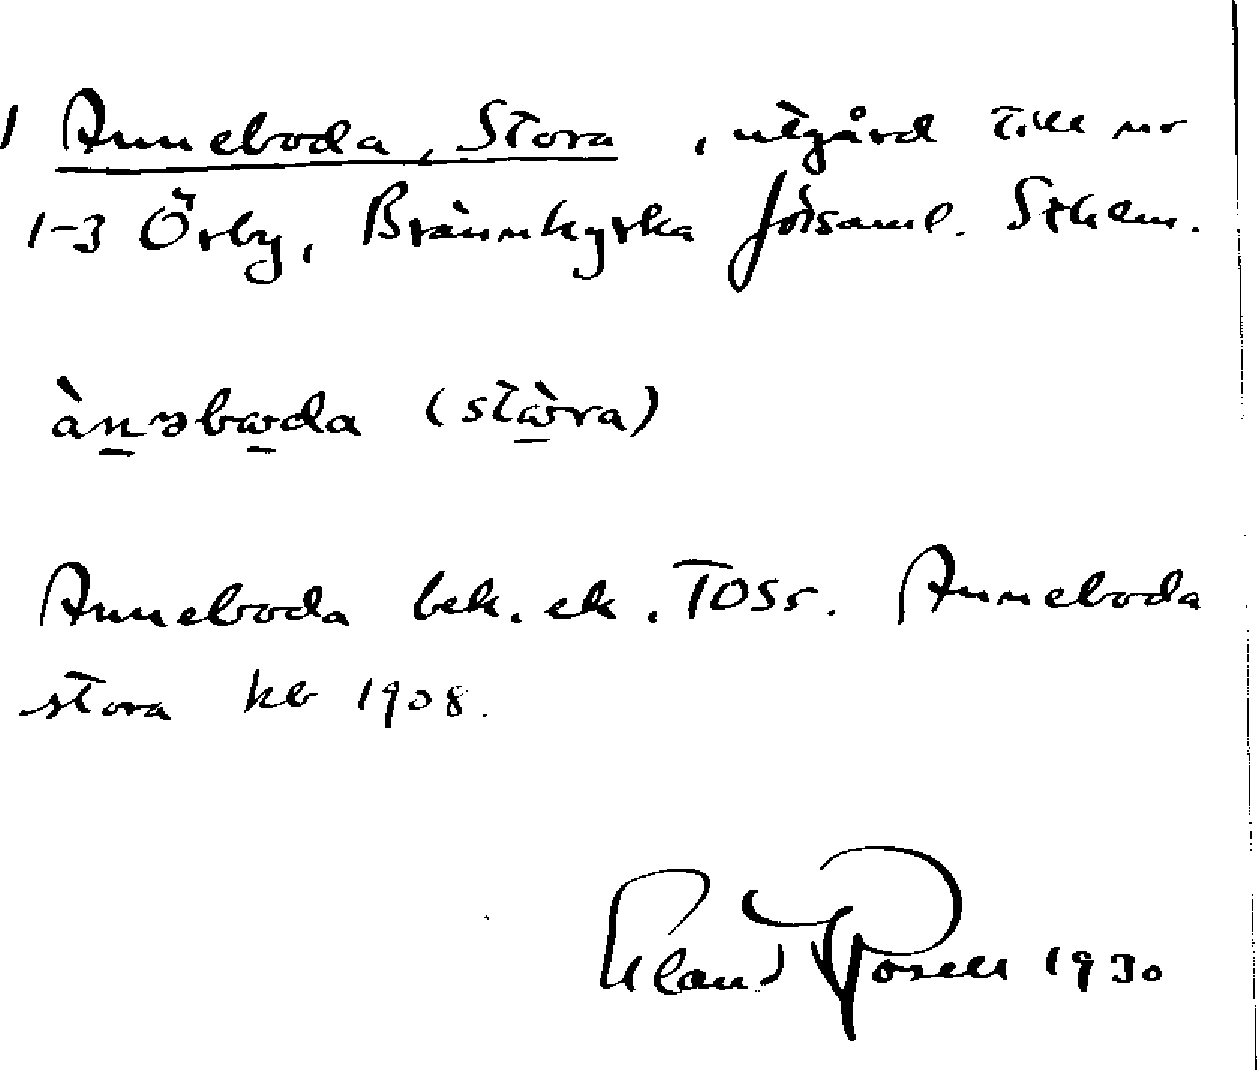 1 Anneboda, Stora, utgård till nr
1-3 Örby, Brännkyrka församl. Sthlm.
ànəbωda (stὼra)
Anneboda bek. ek. TOSr. Anneboda
stora kb 1908.
1930